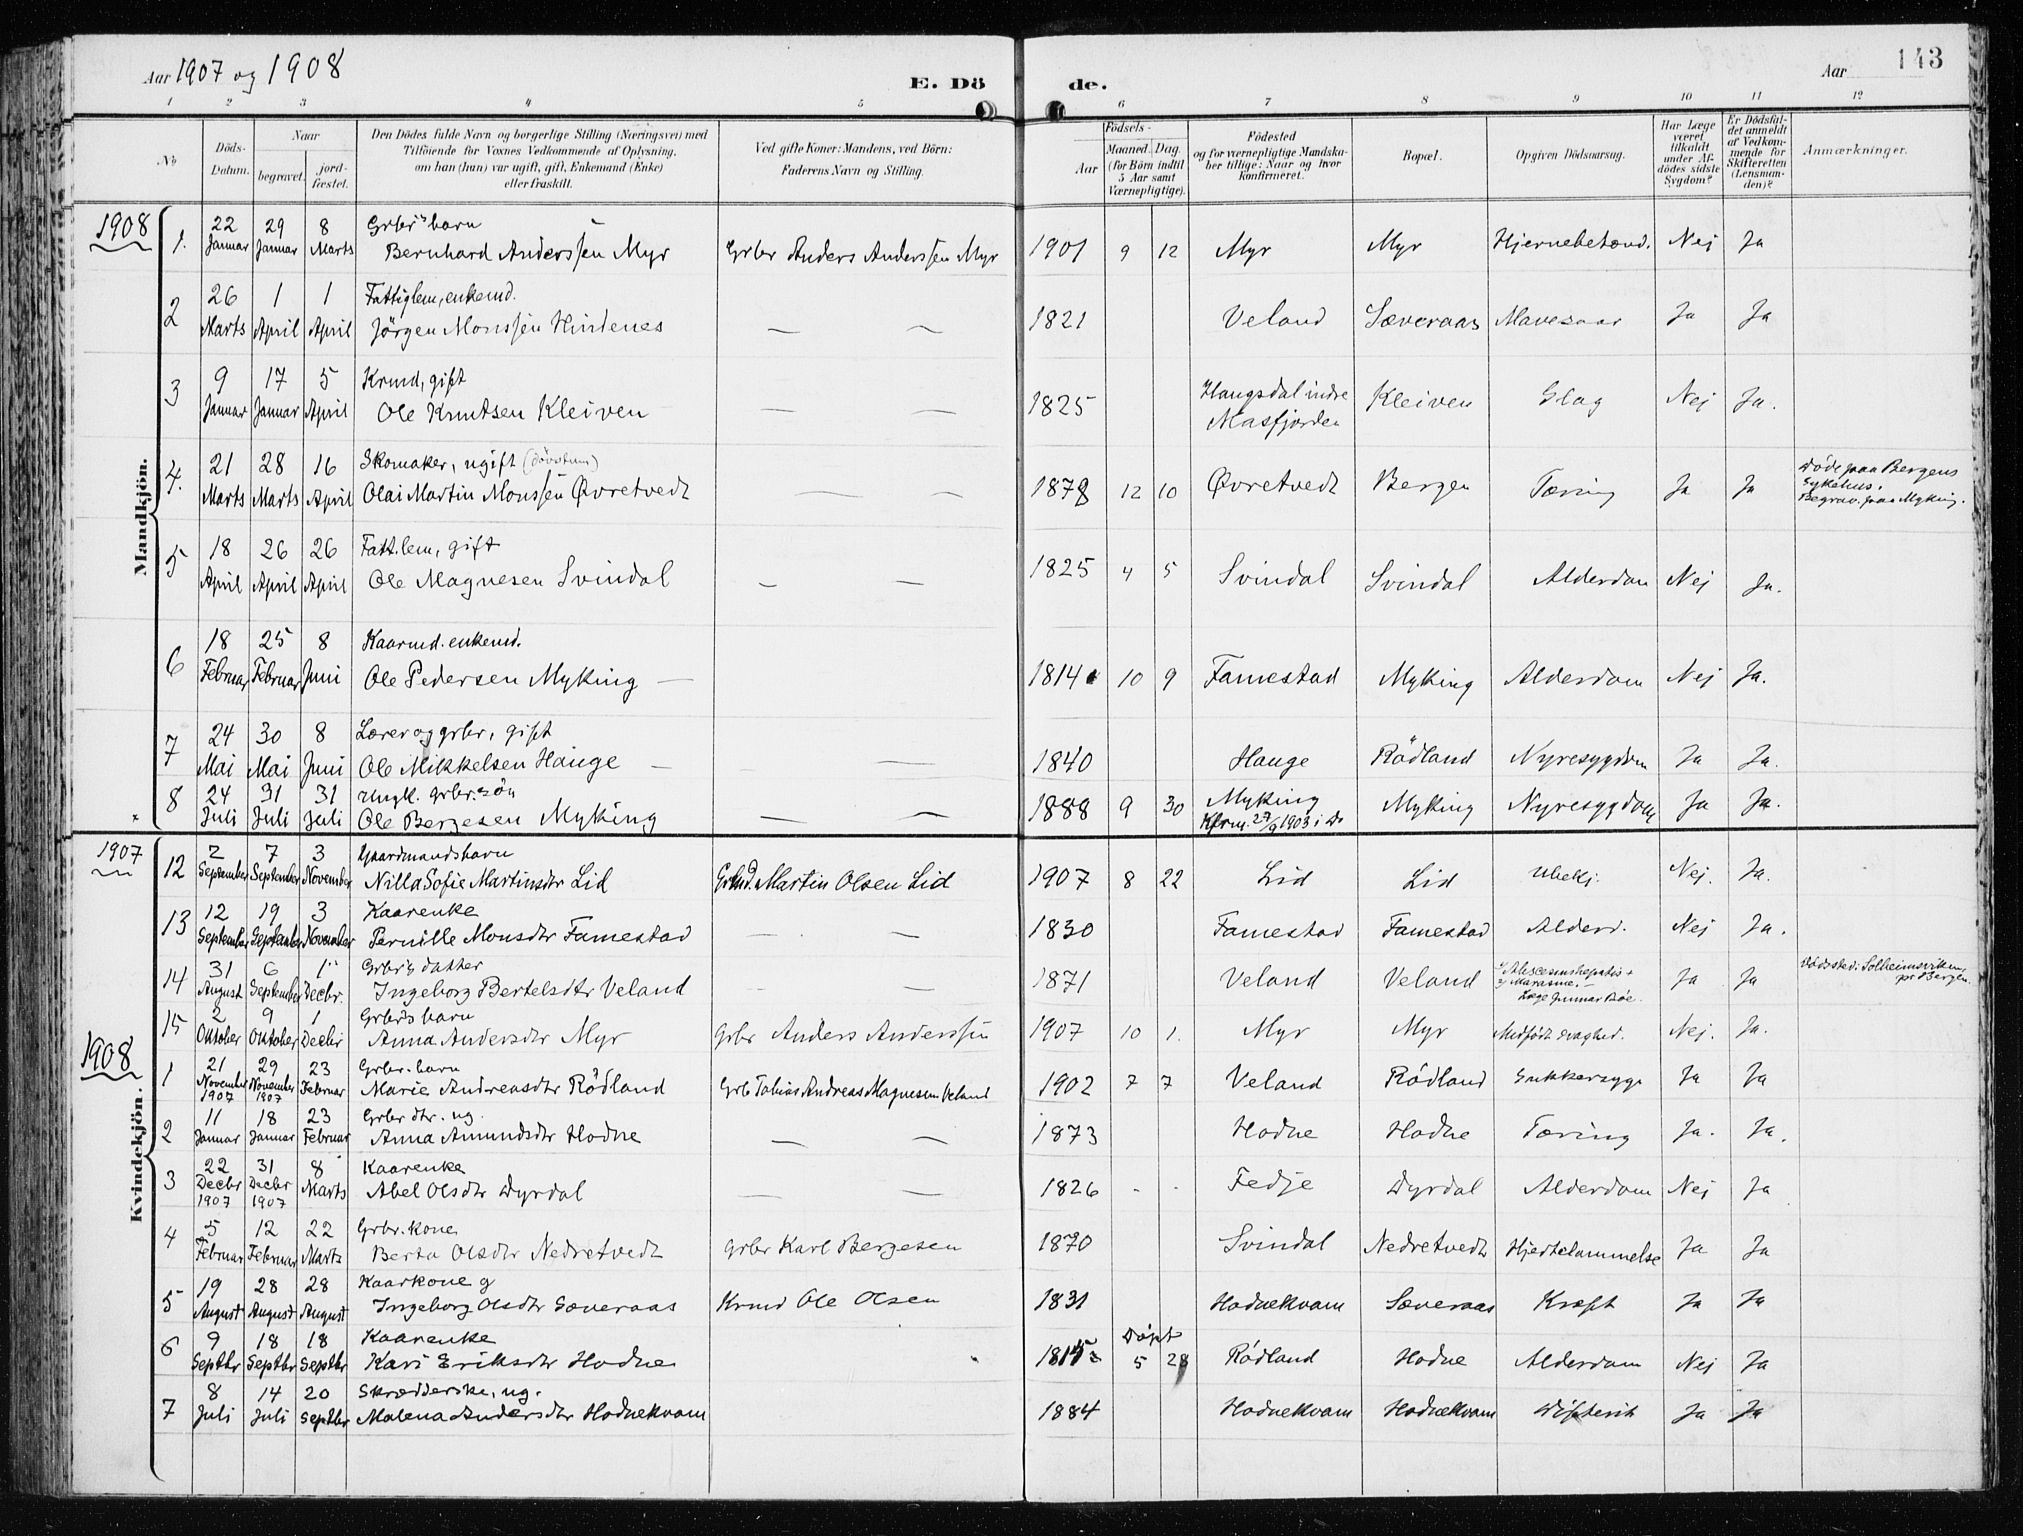 Aar 1907 og 1908
E. Dö
de.
Aar
143
1 2 3 4 5 6 7 8 9 10 11 12
No
Döds-Datum.
Naar
begravet.
jord-fæstet.
Den Dödes fulde Navn og borgerlige Stilling (Næringsvei) med
Tilföiende for Voxnes Vedkommende af Oplysning,
om han (hun) var ugift, gift, Enkemand (Enke)
eller fraskilt.
Ved gifte Koner: Mandens, ved Börn:
Faderens Navn og Stilling.
Födsels-
Aar
Maaned. Dag.
(for Börn indtil
5 Aar samt
Værnepligtige).
Födested
og for værnepligtige Mandska-
ber tillige: Naar og hvor
konfirmeret.
Bopæl.
Opgiven Dödsaarsag.
Har Læge
været
tilkaldt
under Af-
dödes sidste
Sygdom?
Er Dödsfal-
det anmeldt
af Vedkom-
mende for
Skifteretten
(Lensman-
den)?
Anmærkninger.
Mandkjön.
1908
1. 22 Januar 29 Januar 8 Marts Grbr's barn
Bernhard Anderssen Myr Grbr Anders Anderssen Myr 1901 9 12 Myr Myr Hjernebetænd. Nej Ja
2 26 Marts 1 April 1 April Fattiglem, enkemd.
Jörgen Monssen Hindenes — — 1821 Veland Sæveraas Mavesaar Ja Ja
3 9 Januar 17 Januar 5 April Krmd, gift
Ole Knutsen Kleiven — — 1825 Haugsdal indre Masfjorden Kleiven Slag Nej Ja.
4. 21 Marts 28 Marts 16 April Skomaker, ugift (døvstum)
Olai Martin Monssen Øvretvedt — — 1878 12 10 Øvretvedt Bergen Tæring Ja Ja Døde paa Bergens
Sykehus.
Begrav. paa Myking.
5 18 April 26 April 26 April Fatt.lem, gift
Ole Magnesen Svindal — — 1825 4 5 Svindal Svindal Alderdom Nej Ja.
6 18 Februar 25 Februar 8 Juni Kaarmd. enkemd.
Ole Pedersen Myking — 1814 10 9 Famestad Myking Alderdom Nej Ja.
7 24 Mai 30 Mai 8 Juni Lærer og grbr, gift
Ole Mikkelsen Hauge — — 1840 Hauge Rödland Nyresygdom Ja Ja.
8 24 Juli 31 Juli 31 Juli Ungk. grbr.sön
Ole Bergesen Myking — — 1888 9 30 Myking
Kfrm. 27/9 1903 i Do Myking Nyresygdom Ja Ja.
Kvindekjön.
1907
12 2 September 7 September 3 November Gaardmandsbarn
Nilla Sofie Martinsdtr Lid Grmd. Martin Olsen Lid 1907 8 22 Lid Lid Ubekj. Nej. Ja.
13 12 September 19 September 3 November Kaarenke
Pernille Monsdtr Famestad — — 1830 Famestad Famestad Alderd. Nej Ja.
14 31 August 6 September 1 Decbr. Grbr's datter
Ingeborg Bertelsdtr Veland — — 1871 Veland Veland Abscessus hepatis +
Marasme. —
Læge Gunnar Bøe. Ja Ja Dødssted: Solheimsviken,
pr Bergen.
15 2 Oktober 9 Oktober 1 Decbr Grbr's barn
Anna Andersdtr Myr Grbr Anders Anderssen 1907 10 1. Myr Myr Medfödt svaghed. Nej. Ja.
1908
1 21 November 1907 29 November 1907 23 Februar Grbr. barn
Marie Andreasdtr Rödland Grb Tobias Andreas Magnesen Veland 1902 7 7 Veland Rödland Sukkersyge Ja Ja
2 11 Januar 18 Januar 23 Februar Grbr dtr. ug.
Anna Amundsdtr Hodne — — 1873 Hodne Hodne Tæring Ja. Ja.
3 22 Decbr 1907 31 Decbr 1907 8 Marts Kaarenke
Abel Olsdtr Dyrdal — — 1826 - - Fedje Dyrdal Alderdom Nej Ja
4 5 Februar 12 Februar 22 Marts Grbr. kone
Berta Olsdtr Nedretvedt Grbr Karl Bergesen 1870 Svindal Nedretvedt Hjertelammelse Ja Ja
5 19 August 28 August 28 August Kaarkone g
Ingeborg Olsdtr Sæveraas Krmd Ole Olsen 1831 Hodnekvam Sæveraas Kræft Ja Ja
6 9 Septbr 18 Septbr 18 Septbr Kaarenke
Kari Eriksdtr Hodne Döpt 5 28 Rödland Hodne Alderdom Nej Ja
7 8 Juli 14 Juli 20 Septbr Skrædderske, ug.
Malena Andersdtr Hodnekvam 1884 Hodnekvam Hodnekvam Difterit Ja Ja